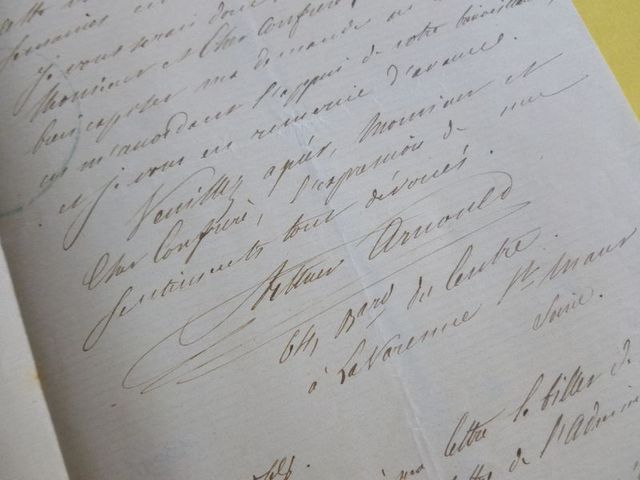 cette
semaines en
Je vous serais donc
Monsieur et Cher Confrère,
bien appuyer ma demande
en m'accordant l'appui de votre bienveillan
et je vous en remercie d'avance.
Veuillez agréer, Monsieur et
Cher Confrère, l'expression de mes
sentiments tout dévoués.
Arthur Arnould
64, Bard du Centre.
à La Varenne St Maur
Seine.
lettre le billet de
de l'Admini